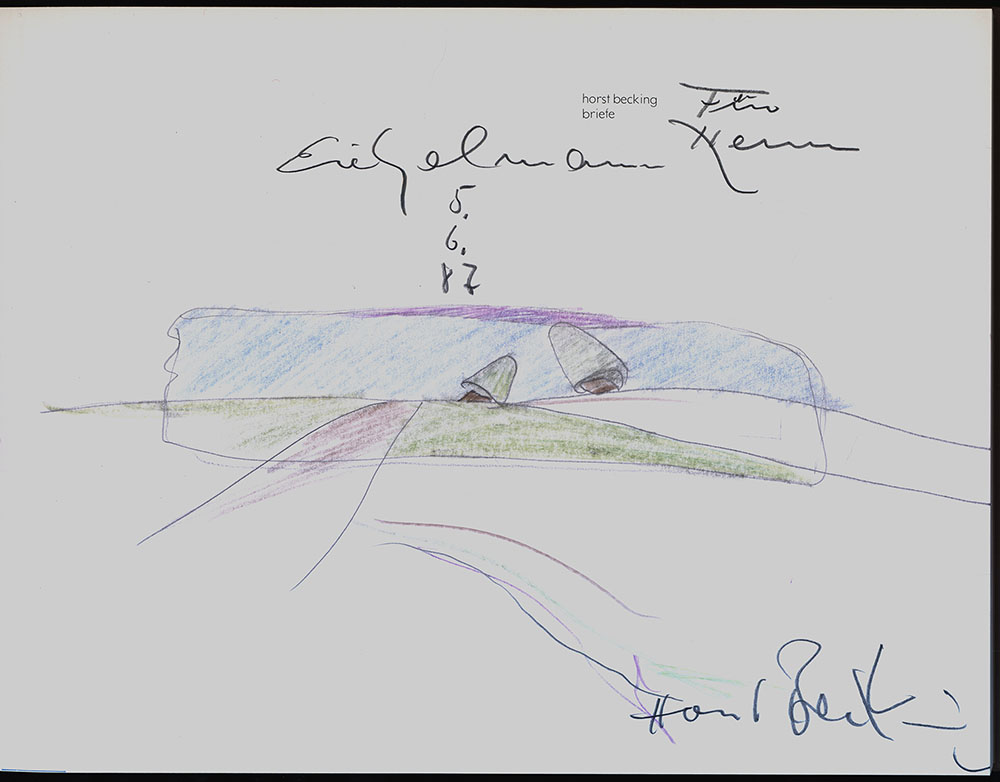 horst becking
briefe
Für
Herrn
5.
6.
87
Horst Becking